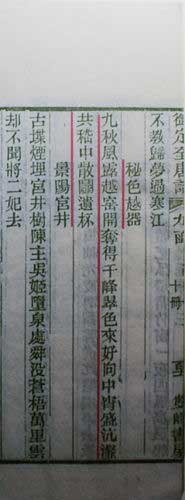 御定全唐詩
九函
十冊
不教歸夢過寒江
秘色越器
九秋風露越窯開奪得千峰翠色來好向中宵盛沆瀣
共嵇中散鬬遺杯
景陽宮井
古堞煙埋宮井樹陳主吳姬墮泉處舜没蒼梧萬里雲
却不聞將二妃去